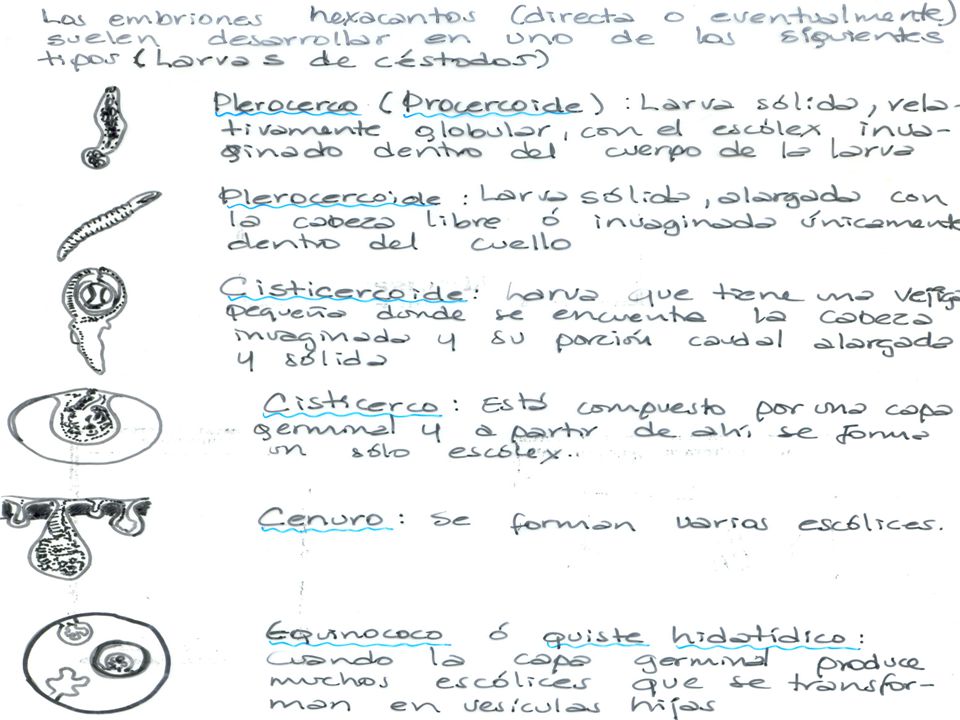 Los embriones hexacantos (directa o eventualmente)
suelen desarrollar en uno de los siguientes
tipos (Larvas de céstodos)
Plerocerco (Procercoide) : Larva sólida, rela-
tivamente globular, con el escólex inva-
ginado dentro del cuerpo de la larva
Plerocercoide : Larva sólida, alargada con
la cabeza libre ó invaginada únicamente
dentro del cuello
Cisticercoide : Larva que tiene una vejiga
pequeña donde se encuentra la cabeza
invaginada y su porción caudal alargada
y sólida
Cisticerco : Está compuesto por una capa
germinal y a partir de ahí, se forma
un sólo escólex..
Cenuro : Se forman varias escólices.
Equinococo ó quiste hidatídico :
Cuando la capa germinal produce
muchos escólices que se transfor-
man en vesículas hijas